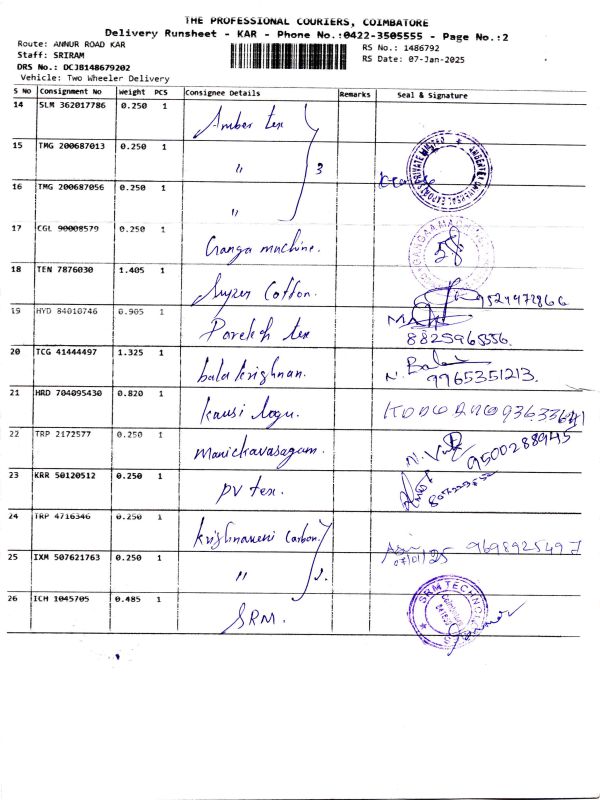 THE PROFESSIONAL COURIERS, COIMBATORE
Delivery Runsheet - KAR - Phone No.:0422-3505555 - Page No.:2
Route: ANNUR ROAD KAR
RS No.: 1486792
Staff: SRIRAM
RS Date: 07-Jan-2025
DRS No.: DCJB148679202
Vehicle: Two Wheeler Delivery
S No Consignment No Weight PCS Consignee Details Remarks Seal & Signature
14 SLM 362017786 0.250 1 Amber tex
15 TMG 200687013 0.250 1 " 3
16 TMG 200687056 0.250 1 "
17 CGL 90008579 0.250 1 Ganga machine. 58
18 TEN 7876030 1.405 1 Super Cotton.
19 HYD 84010746 0.905 1 tex 8825965556.
20 TCG 41444497 1.325 1 bala krishnan. N. Bala 9965351213.
21 HRD 704095430 0.820 1 kausi logu.
22 TRP 2172577 0.250 1 manickavasagam. 9500288945
23 KRR 50120512 0.250 1 PV tex.
24 TRP 4716346 0.250 1 krishnaveni Carbon. 9698925497
07/01/25
25 IXM 507621763 0.250 1 " 2.
26 ICH 1045705 0.485 1 SRM. SRM TECHNOLO